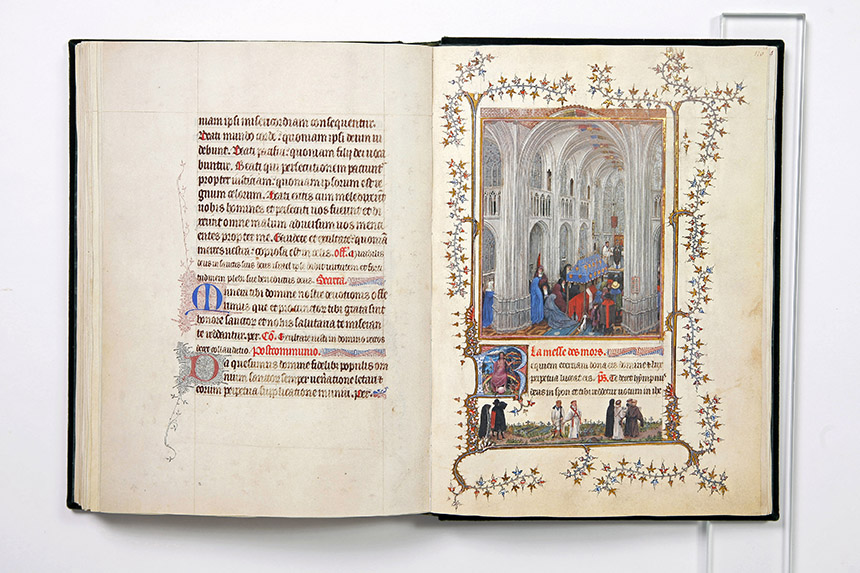 niam ipsi misericordiam consequentur.
Beati mundo corde: quoniam ipsi deum vi
debunt. Beati pacifici: quoniam filij dei voca
buntur. Beati qui persecutionem paciunt
propter iusticiam: quoniam ipsorum est re
gnum celorum. Beati estis cum
homines et
omne malum adversum vos
entes propter me. Gaudete et exultate: quoniam
merces vestra copiosa est in celis. off.
Secreta.
Munera tibi domine nostre devotionis offe
rimus que et pro cunctorum tibi grata sint
honore sanctorum et nobis salutaria te miseran
te reddantur. per. Co.
Postcommunio.
Da quesumus domine fidelibus populis om
nium sanctorum semper veneratione letari et
eorum perpetua supplicatione muniri. per.
La messe des mors.
Requiem eternam dona eis domine et lux
perpetua luceat eis. ps. Te decet hympnus
deus in syon et tibi reddetur votum in ihe